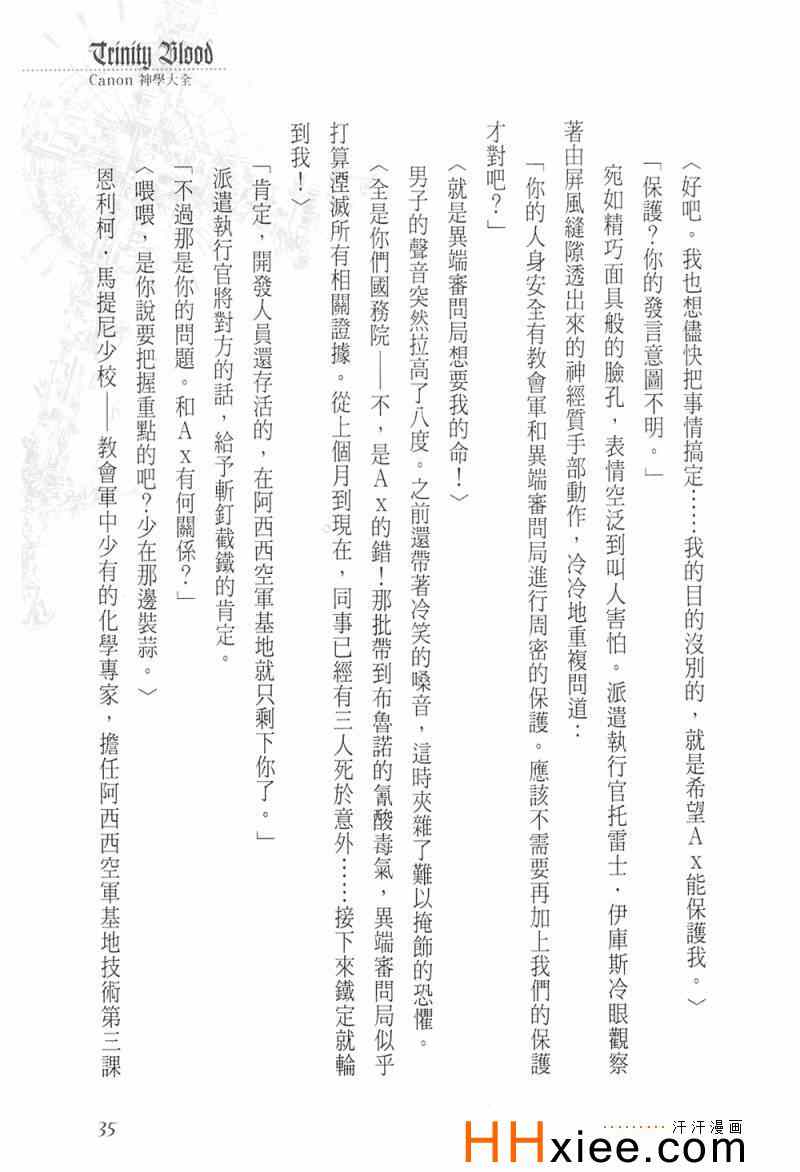 Trinity Blood
Canon 神學大全
〈好吧。我也想儘快把事情搞定……我的目的沒別的，就是希望Ax能保護我。〉
「保護？你的發言意圖不明。」
宛如精巧面具般的臉孔，表情空泛到叫人害怕。派遣執行官托雷士．伊庫斯冷眼觀察
著由屏風縫隙透出來的神經質手部動作，冷冷地重複問道：
「你的人身安全有教會軍和異端審問局進行周密的保護。應該不需要再加上我們的保護
才對吧？」
〈就是異端審問局想要我的命！〉
男子的聲音突然拉高了八度。之前還帶著冷笑的嗓音，這時夾雜了難以掩飾的恐懼。
〈全是你們國務院——不，是Ax的錯！那批帶到布魯諾的氰酸毒氣，異端審問局似乎
打算湮滅所有相關證據。從上個月到現在，同事已經有三人死於意外……接下來鐵定就輪
到我！〉
「肯定，開發人員還存活的，在阿西西空軍基地就只剩下你了。」
派遣執行官將對方的話，給予斬釘截鐵的肯定。
「不過那是你的問題。和Ax有何關係？」
〈喂喂，是你說要把握重點的吧？少在那邊裝蒜。〉
恩利柯．馬提尼少校——教會軍中少有的化學專家，擔任阿西西空軍基地技術第三課
35
汗汗漫画
HHxiee.com